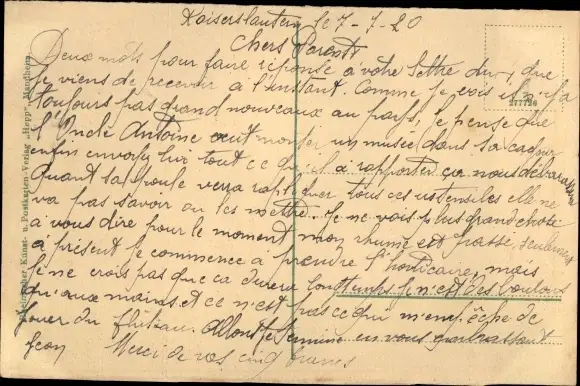 Kaiserslautern, le 7-7-20
Chers Parents
Deux mots pour faire réponse à votre lettre du 4 que
je viens de recevoir à l'instant. Comme je vois il n'y a
toujours pas grand nouveaux au pays, je pense que
l'Oncle Antoine veut monter un musée dans sa
enfin envoyez lui tout ce qu'il a rapporter ça nous débarassera
Quand sa poule verra rappliquer tous ces ustensiles elle ne
va pas savoir ou les mettre. Je ne vois plus grand chose
à vous dire pour le moment mon rhume est passé seulement
à présent je commence à prendre l'hurticaire, mais
je ne crois pas que ca durera longtemps je n'est des boutons
qu'aux mains et ce n'est pas ce qui m'empêche de
jouer du flûteau. Allons je termine en vous embrassant
Léon Merci de vos cinq francs
Rheinischer Kunst- u. Postkarten-Verlag "Hepp" Mannheim
277726